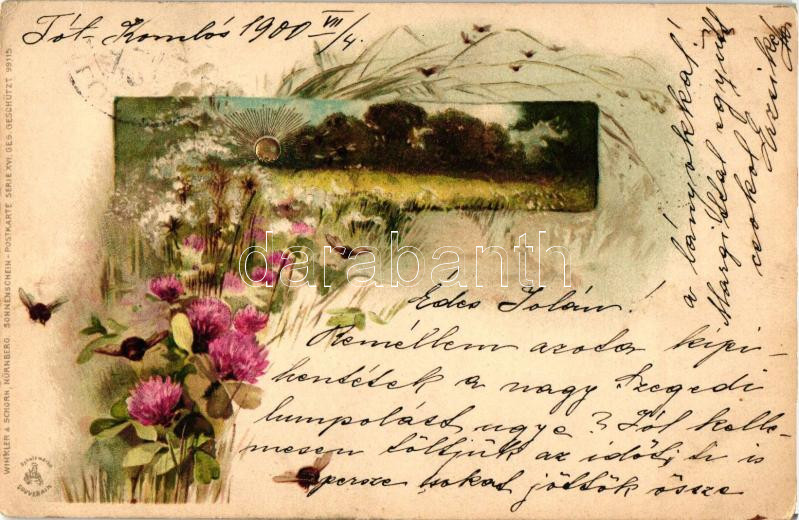 Tót-Komlós 1900 VII/4.
Édes Jolán!
Reméllem azota kipi-
hentétek a nagy Szegedi
lumpolást ugye? Jól kelle-
mesen töltjük az időt, ti is
persze sokat jöttök össze
a lányokkal
Margittal együtt
csokol Erzsike
WINKLER & SCHORN, NÜRNBERG. SONNENSCHEIN-POSTKARTE SERIE XVI. GES. GESCHÜTZT 99115
Schutzmarke
SOUVERAIN
darabanth